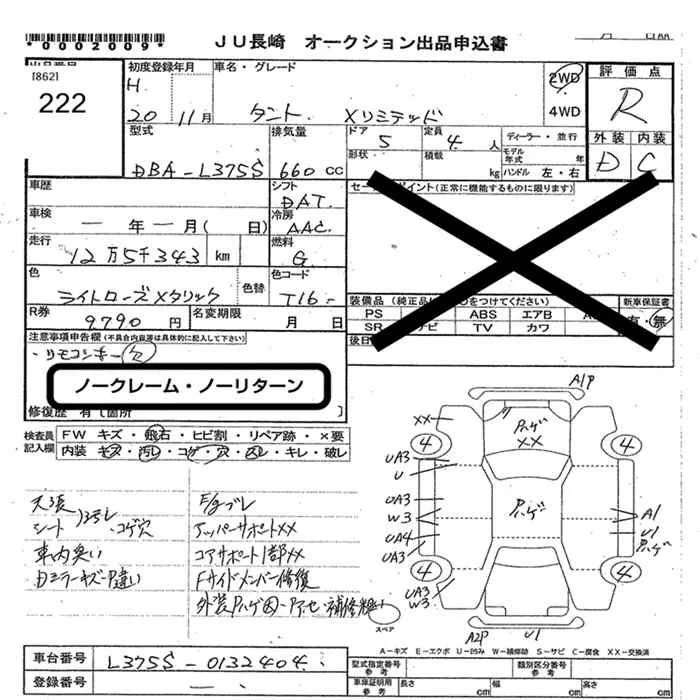 *0002009*
JU長崎 オークション出品申込書
出品番号
[862]
222
初度登録年月
H
20年 11月
車名・グレード
タント Xリミテッド
2WD
4WD
評価点
R
外装 内装
D C
型式
DBA-L375S
排気量
660 cc
ドア 5
形状
定員 4人
積載 kg
ディーラー・並行
モデル年式 年
ハンドル 左・右
車歴
シフト
DAT
車検
一年一月( 日)
冷房
AAC
走行
12万5千343 km
燃料
G
色
ライトローズメタリック
色替
色コード
T16-
R券
9,790円
名変期限 月 日
セールスポイント(正常に機能するものに限ります)
装備品(純正品に○をつけてください)
PS ABS エアB
SR ナビ TV カワ
新車保証書
有・無
後日
注意事項申告欄(不具合内容等は具体的に記入して下さい)
・リモコンキー欠
ノークレーム・ノーリターン
修復歴 有〔箇所 〕
検査員記入欄
FW キズ・飛石・ヒビ割・リペア跡・×要
内装 キズ・汚レ・コゲ・穴・凹レ・キレ・破レ
天張
シート 汚レ ・コゲ穴
車内臭い
E/gブレ
アッパーサポートXX
コアサポート1部XX
Fサイドメンバー修復
A1P
XX
Pハゲ
XX
4
4
UA3
U
UA3
W3
UA4
UA3
Pハゲ
A1
U1
Pハゲ
4
4
UA3
W3
A2P
U1
スペア
A-キズ E-エクボ U-凹み W-補修跡 S-サビ C-腐食 XX-交換済
車台番号
L375S-0132404
登録番号
一、
型式指定番号
参考
類別区分番号
参考
車庫証明用
参考
長さ cm
幅 cm
高さ cm